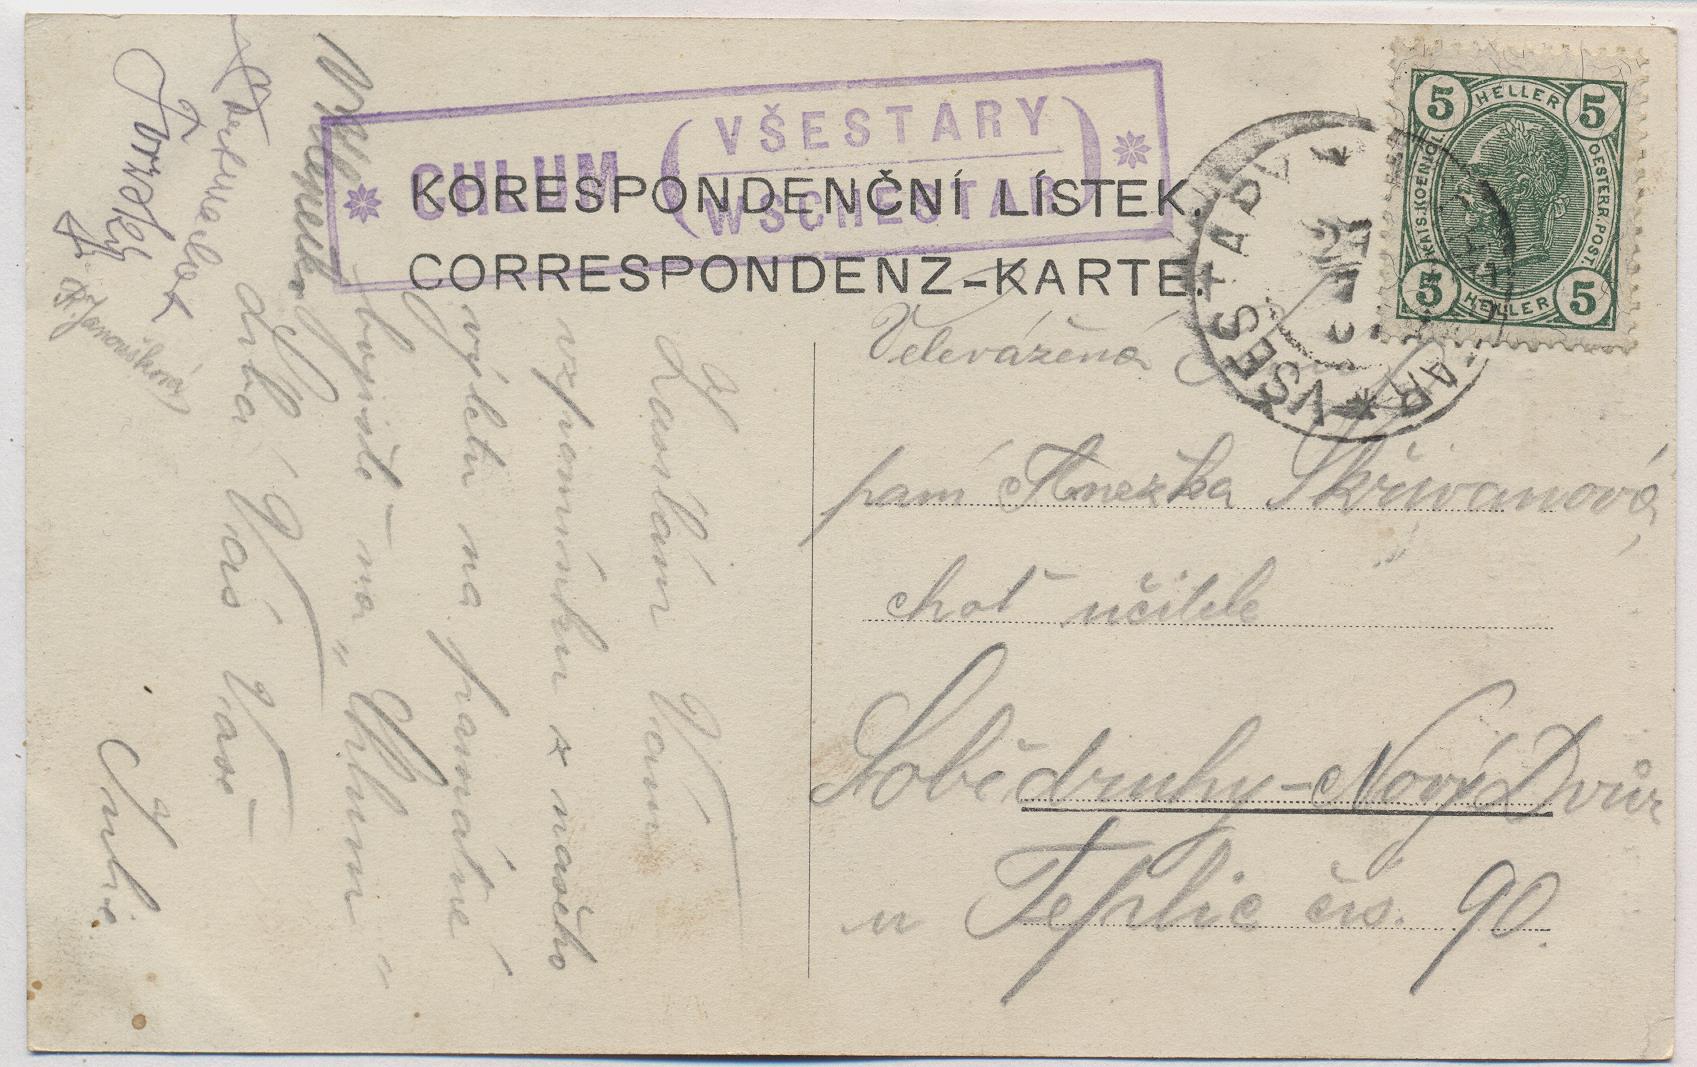 CHLUM (VŠESTARY
WSCHESTAR)
KORESPONDENČNÍ LÍSTEK.
CORRESPONDENZ-KARTE.
5 HELLER 5
KAIS. KOENIGL. OESTERR. POST.
5 HELLER 5
VŠESTARY
Velevážená
paní Anežka Skřivanová,
choť učitele
Sobědruhy-Nový Dvůr
u Teplic čís. 90.
Zasílám Vám
vzpomínku z našeho
výletu na památné
bojiště na "Chlum"
Líbá Vás Vaše
Julie
R. Janoušková